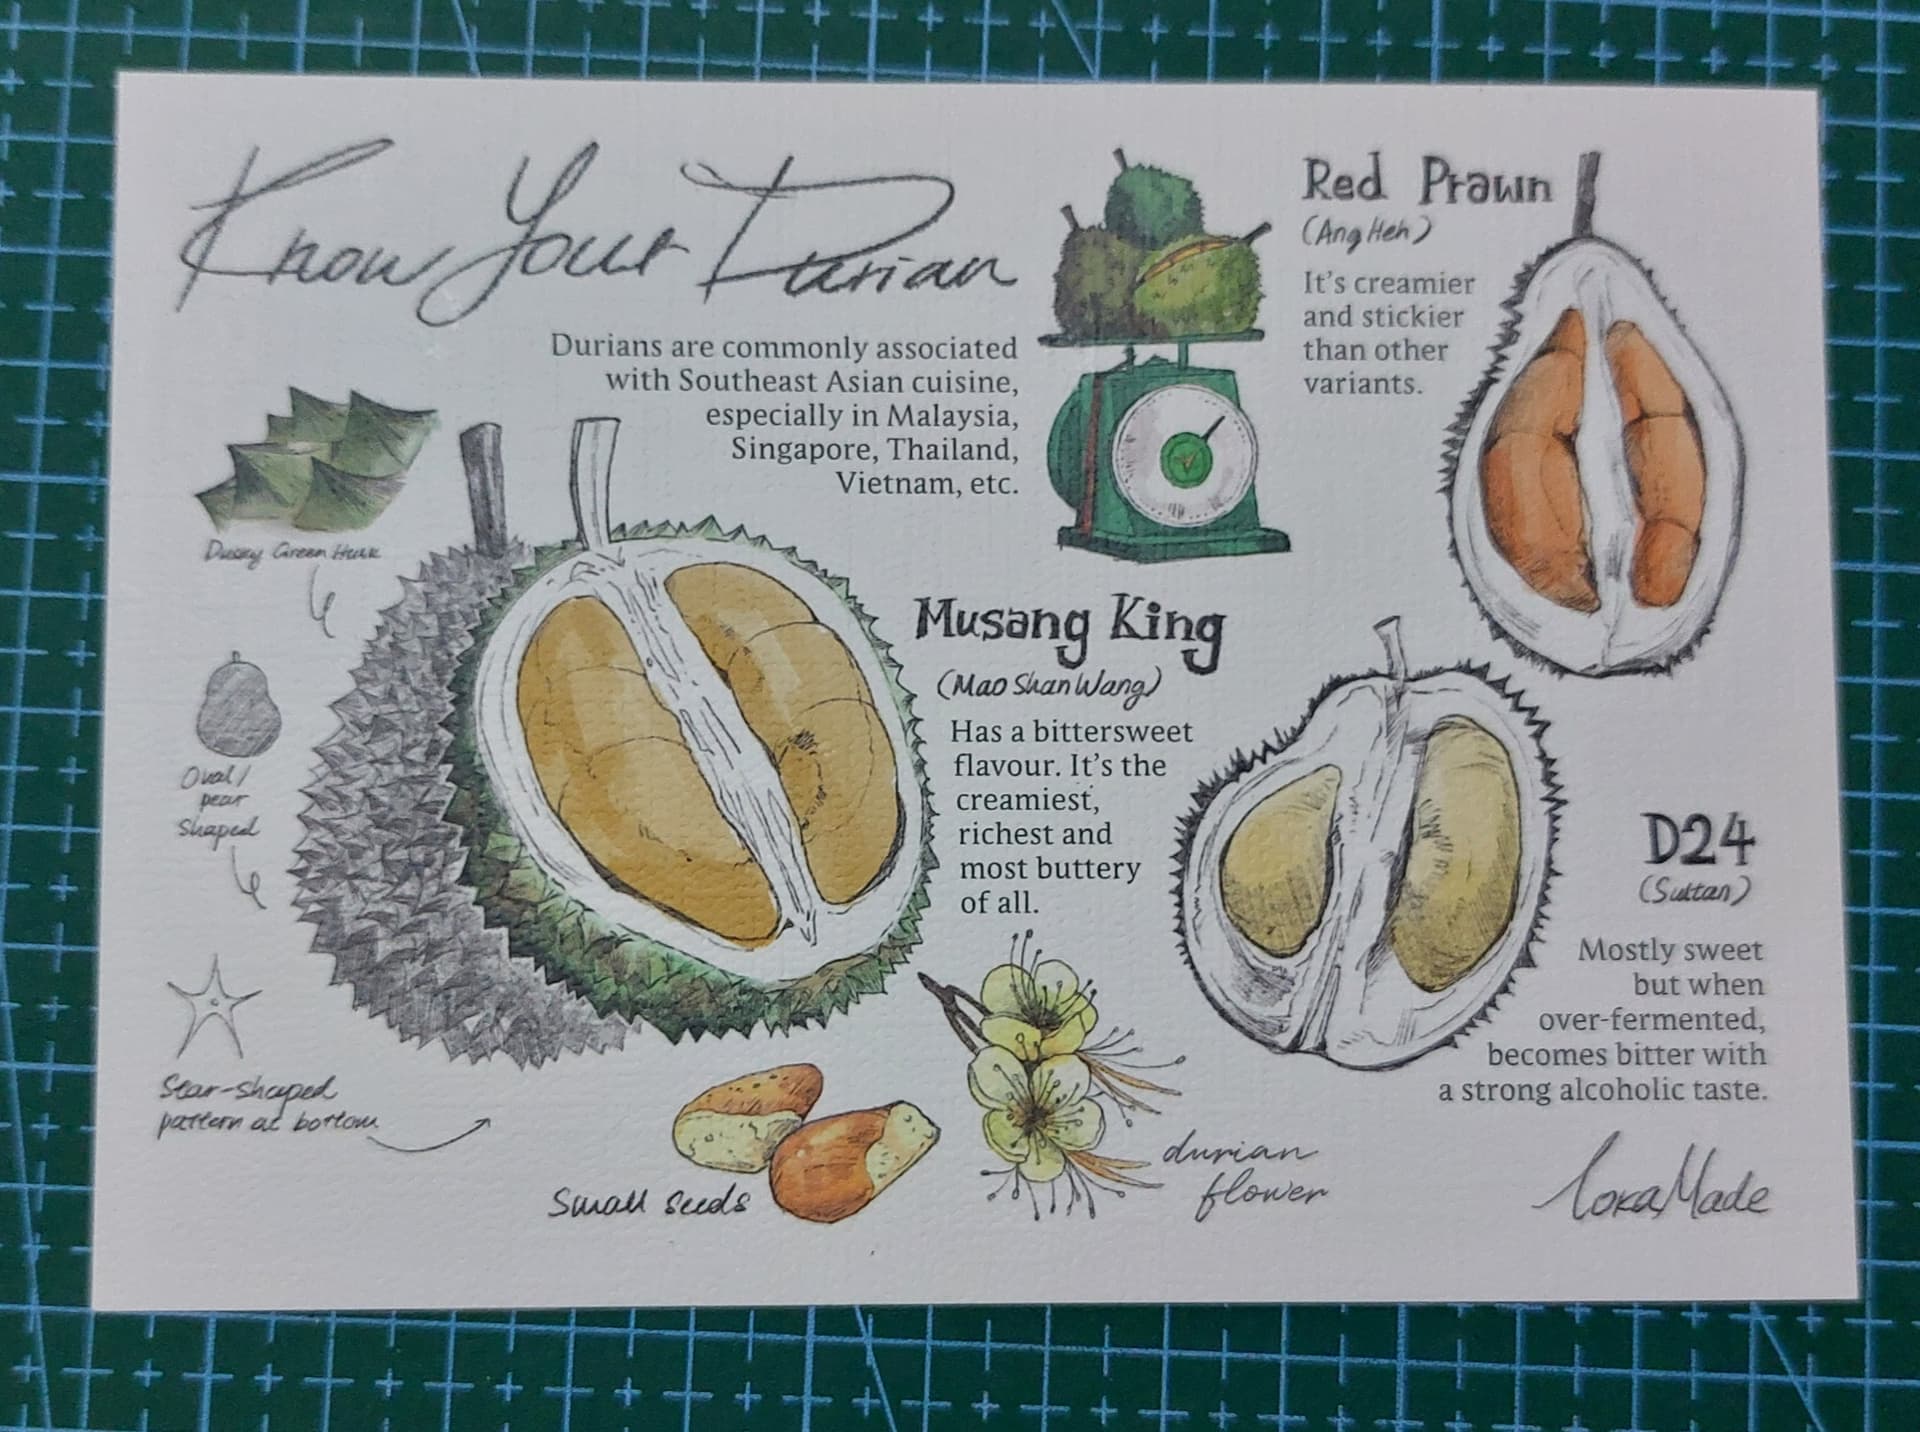 Know Your Durian
Durians are commonly associated
with Southeast Asian cuisine,
especially in Malaysia,
Singapore, Thailand,
Vietnam, etc.
Red Prawn
(Ang Heh)
It's creamier
and stickier
than other
variants.
Dusky Green Husk
Oval/
pear
shaped
Star-shaped
pattern at bottom
Musang King
(Mao Shan Wang)
Has a bittersweet
flavour. It's the
creamiest,
richest and
most buttery
of all.
D24
(Sultan)
Mostly sweet
but when
over-fermented,
becomes bitter with
a strong alcoholic taste.
Small seeds
durian
flower
LokaMade